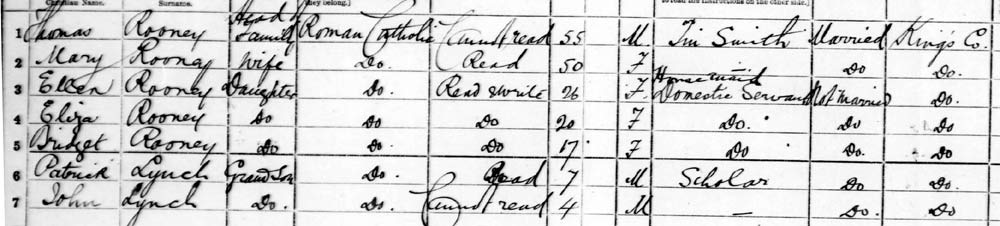 Christian Name. Surname. they belong.] to read the instructions on the other side.]
1 Thomas Rooney Head of Family Roman Catholic Cannot read 55 M Tin Smith Married King's Co.
2 Mary Rooney Wife Do. Read 50 F Do Do.
3 Ellen Rooney Daughter Do. Read & write 26 F House maid Domestic Servant Not Married Do.
4 Eliza Rooney Do Do Do 20 F Do. Do Do
5 Bridget Rooney Do Do. Do 17 F Do Do. Do
6 Patrick Lynch Grand Son Do. Read 7 M Scholar Do Do
7 John Lynch Do. Do. Cannot read 4 M — Do. Do